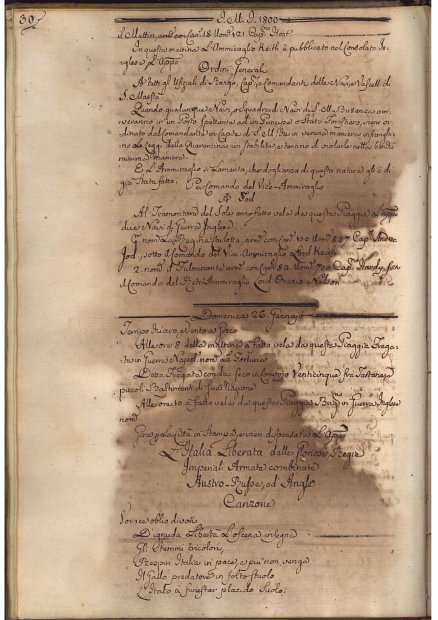 30
J. M. J. 1800
In questa mattina l'Ammiraglio Keith à pubblicato nel Consolato In-
glese l'Appo
Ordini Generali
A tutti gli Ufiziali di Rango, Cap. e Comandanti delle Navi, e Vascelli di
S. Maestà
Quando qualunque Nave, o Squadra di Navi di S. M. Britanica ar-
riveranno in un Porto spettante ad un Principe o Stato Forestiero, viene or-
dinato dal Comandante in Capite di S. M. Bre in veruna maniera infrangi-
no le Leggi della Quarantina ivi stabilite, e
minima maniera.
E l'Ammiraglio si lamenta, che doglianza di questa natura gli è di
già stata fatta.
Per Comando del Vice-Ammiraglio
A Tod
Al Tramontare del Sole anno fatto vela da questa Piaggia
due Navi di Guerra Inglesi
Carlotta, con Can. 100 Uom. 837 Cap. Andrea
Tod, sotto il Comando del Vice Ammiraglio Lord Keith
2. nom. il Fulminante, con Can. 84 Uom. 700 Cap. Hardy, sotto
il Comando del Ammiraglio Lord Orazio Nelson
Domenica 26. Gennajo
Tempo chiaro, e Vento a
Alle ore 8 della mattina à fatto vela da questa Piaggia Frega-
ta in Guerra Napol. nom. La Fortuna
Detta Fregata conduce seco in Convojo Venticinque frà Tartane, e
piccoli Bastimenti di sua Nazione
Alle ore 10 à fatto vela da questa Piaggia Brig. in Guerra Inglese
nom
Gira p. la Città in Stampa, e vien dispensata l'Appa
L'Italia Liberata dalle Gloriose Regie
Imperiali Armate combinate
Austro-Russe, ed Anglo
Canzone
Vorace oblio divori
D'ignuda Libertà l'oscena insegna
Gli Stemmi tricolori,
Respiri Italia in pace, e più non venga
Il Gallo predatore in folto stuolo
L'Italo à funestar placido Suolo.